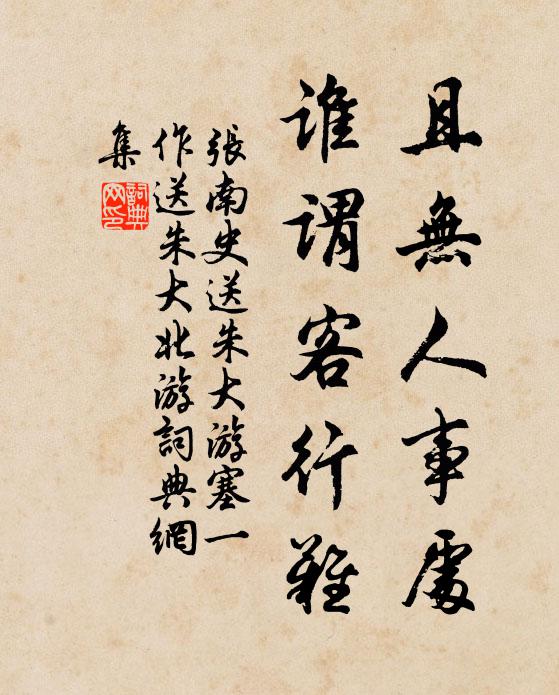 且無人事處
誰謂客行難
張南史送朱大游塞一
作送朱大北游詞典網
集
詞典
网印